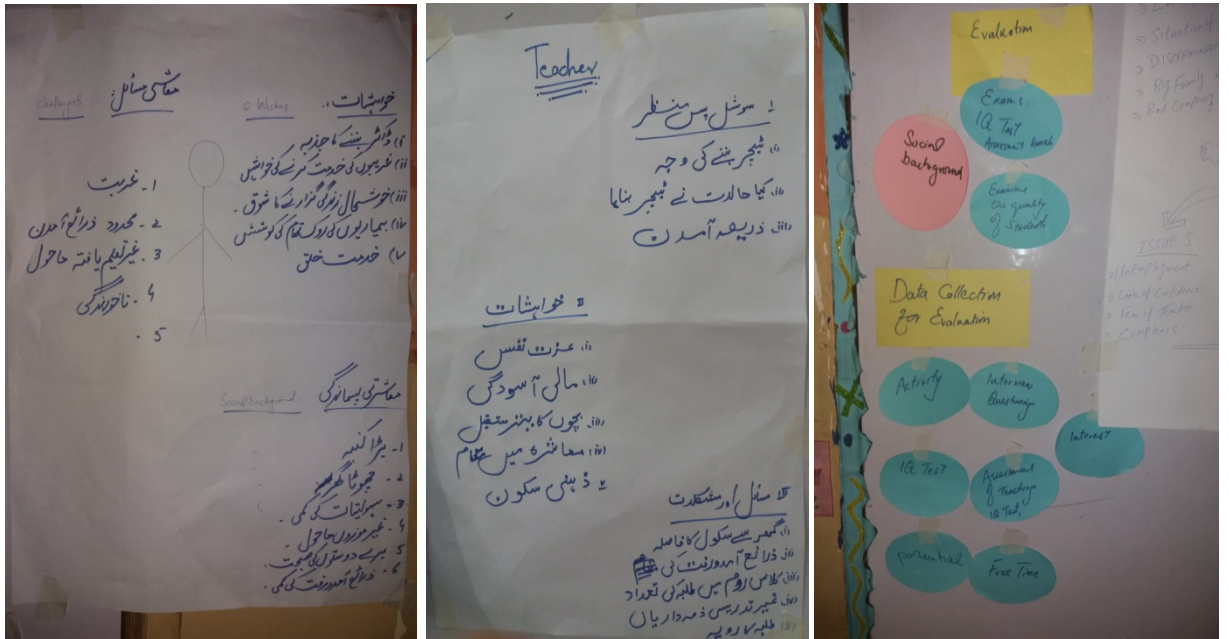 Challenges
معاشی مسائل:
o Wishes
خواہشات:
(i) ڈاکٹر بننے کا جذبہ
(ii) غریبوں کی خدمت کرنے کی خواہش
(iii) خوشحال زندگی گزارنے کا شوق۔
(iv) بیماریوں کی روک تھام کی کوشش
(v) خدمت خلق
1۔ غربت
2۔ محدود ذرائع آمدن
3۔ غیر تعلیم یافتہ ماحول
4۔ ناخواندگی
5۔
Social background
معاشرتی پسماندگی
1۔ بڑا کنبہ
2۔ چھوٹا گھر
3۔ سہولیات کی کمی۔
4۔ غیر موزوں ماحول۔
5 برے دوستوں کی صحبت۔
6۔ ذرائع آمدورفت کی کمی۔
Teacher
I سوشل پس منظر
(i) ٹیچر بننے کی وجہ
(ii) کیا حالات نے ٹیچر بنایا
(iii) ذریعہ آمدن
II خواہشات
(i) عزت نفس
(ii) مالی آسودگی
(iii) بچوں کا بہتر مستقبل
(iv) معاشرہ میں مقام
v ذہنی سکون
III مسائل اور مشکلات
(i) گھر سے سکول کا فاصلہ
(ii) ذرائع آمدورفت کی
(iii) کلاس روم میں طلبہ کی تعداد
(iv) غیر تدریسی ذمہ داریاں
(v) طلبہ کا رویہ
Evaluation
Exams:
IQ Test
Social
background
Examine
the quality
of Students
Data Collection
for Evaluation
Activity
Interview
Questions
Interest
IQ Test
Assessment
of Teaching
IQ Test
potential
Free Time
Situation of
Big Family
ISSUES
UnEmployment
Lack of Confidence
Fear of Teacher
Complexis